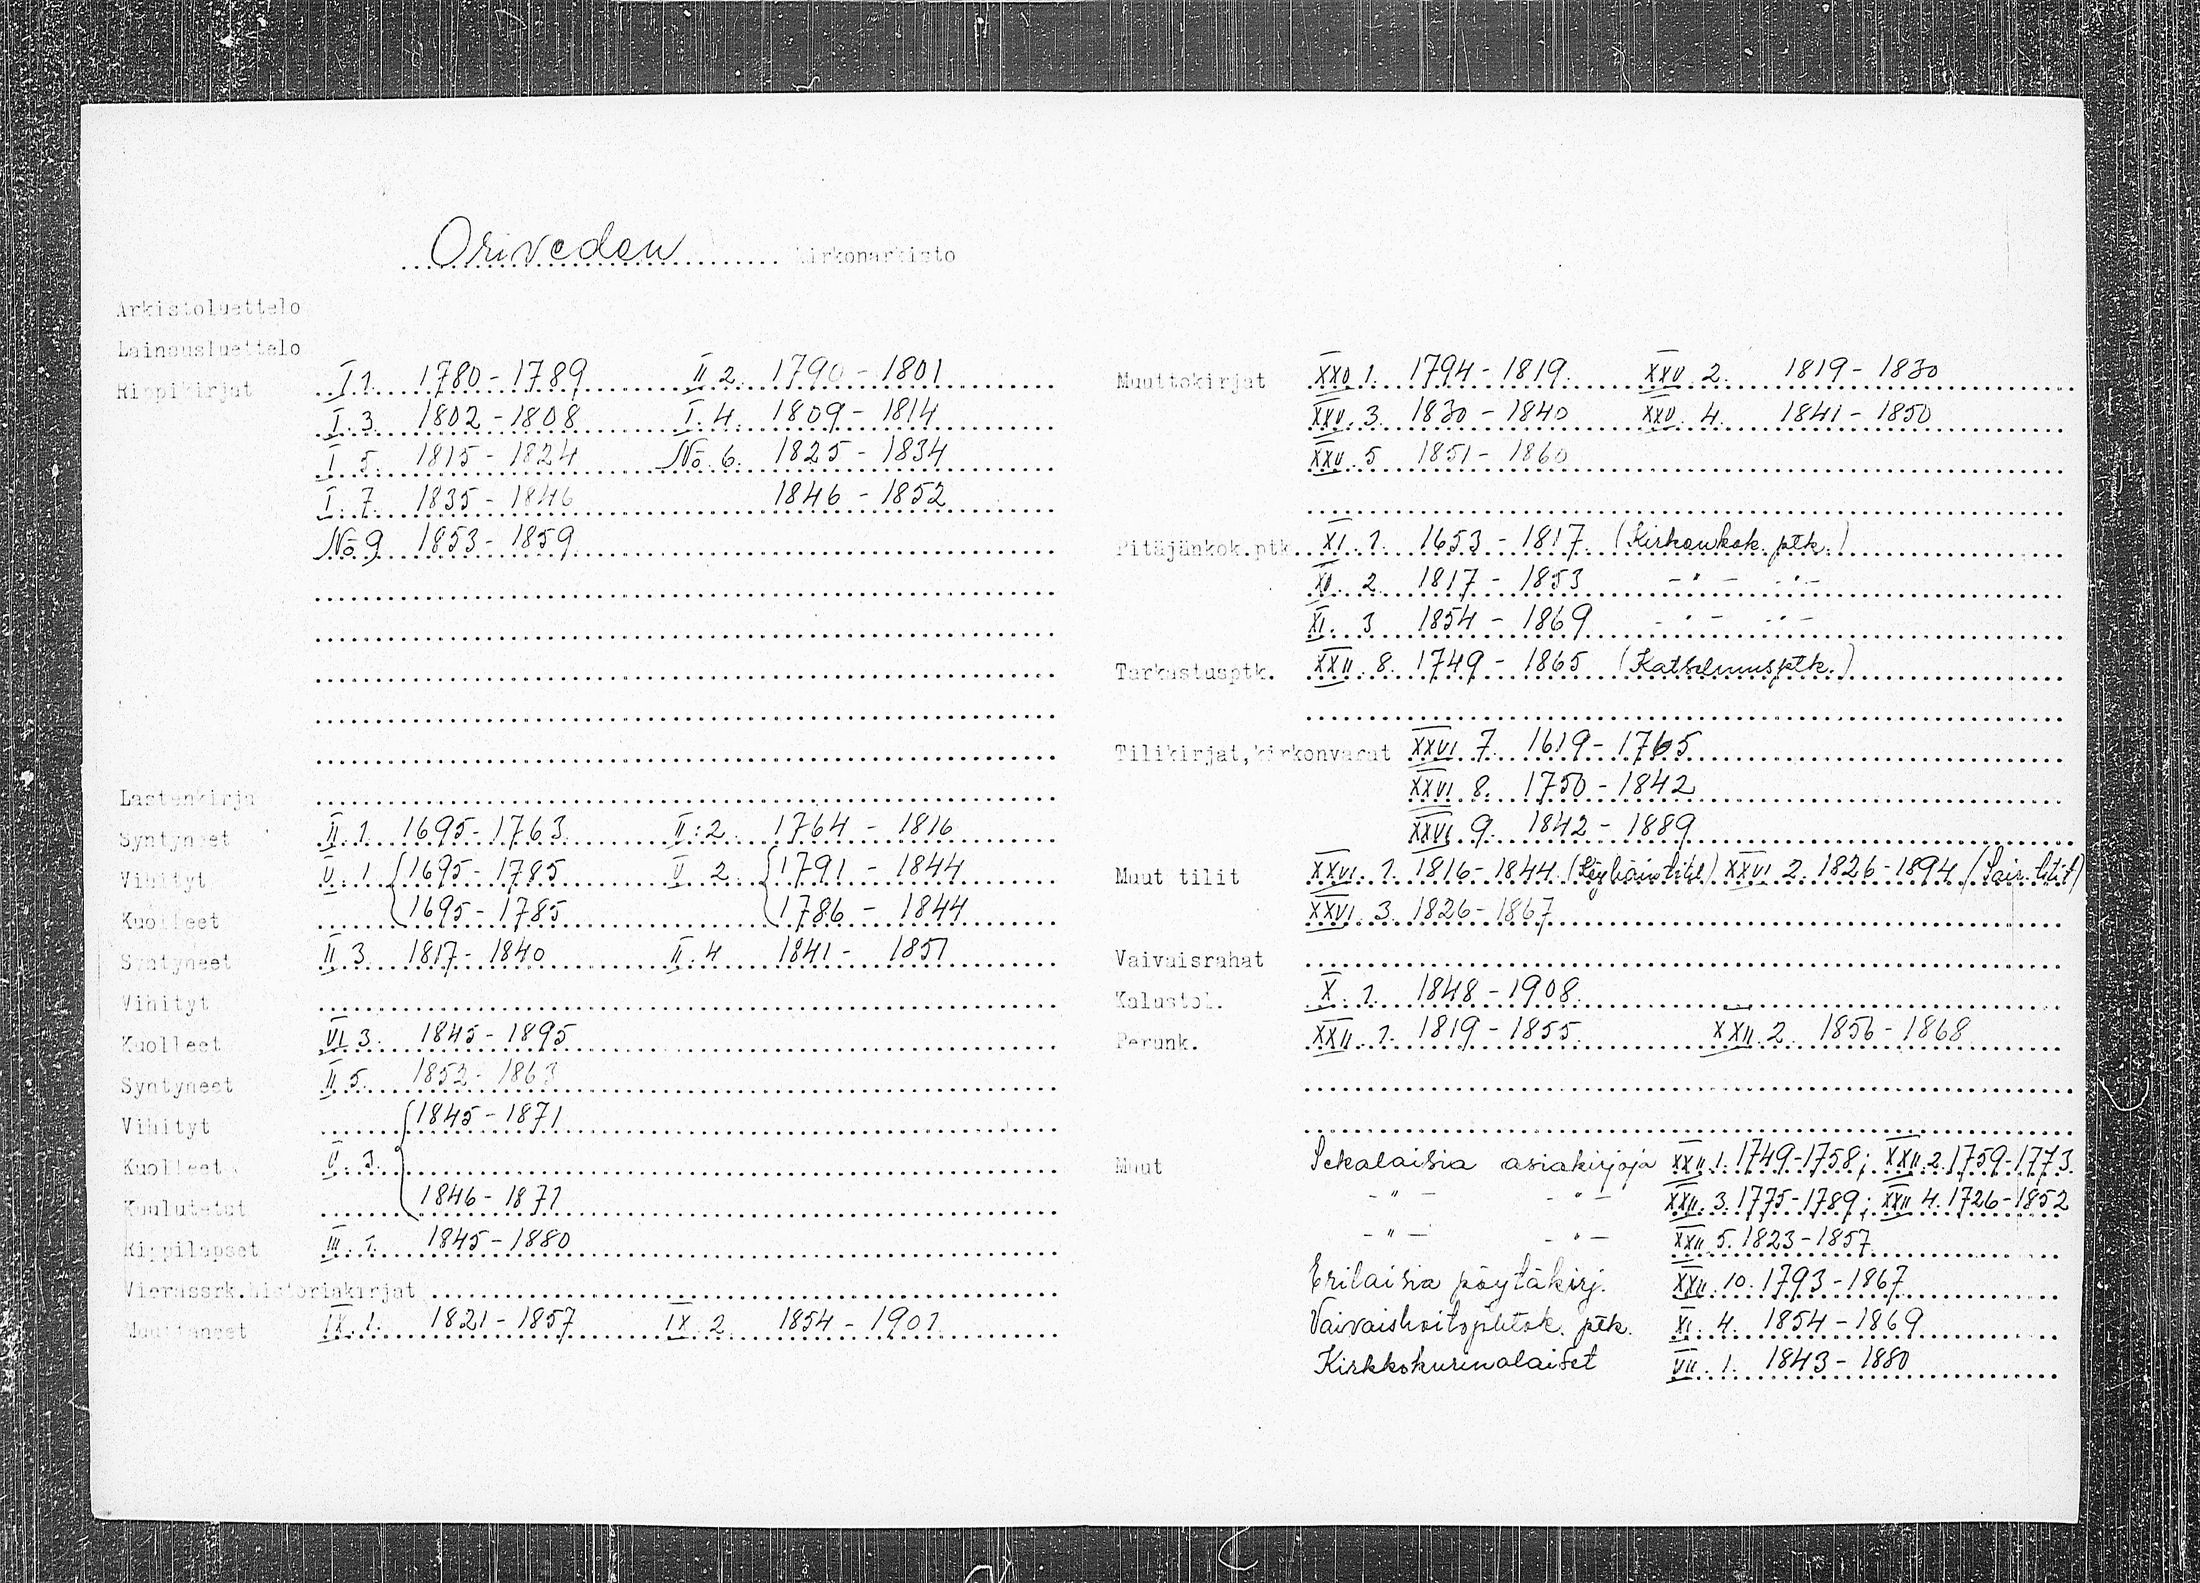 Oriveden kirkonarkisto
Arkistoluettelo
Lainausluettelo
Rippikirjat I 1. 1780-1789 II 2. 1790-1801
I. 3. 1802-1808 I. 4. 1809-1814
I 5. 1815-1824 No. 6. 1825-1834
I. 7. 1835-1846 1846-1852
No 9 1853-1859
Lastenkirja
Syntyneet II. 1. 1695-1763 II: 2. 1764-1816
Vihityt V. 1 { 1695-1785 V. 2. { 1791-1844
Kuolleet { 1695-1785 { 1786-1844
Syntyneet II 3. 1817-1840 II. 4 1841-1851
Vihityt
Kuolleet VI 3. 1845-1895
Syntyneet II 5. 1852-1863
Vihityt { 1845-1871
Kuolleet V. 3.
Kuulutetut 1846-1871
Rippilapset III. 1. 1845-1880
Vierassrk.historiakirjat
Muuttaneet IX. 1. 1821-1857 IX. 2. 1854-1901
Muuttokirjat XXV. 1. 1794-1819. XXV. 2. 1819-1830
XXV. 3. 1830-1840 XXV. 4. 1841-1850
XXV. 5 1851-1860
Pitäjänkok.ptk. XI. 1. 1653-1817. (Kirkonkok. ptk.)
XI. 2. 1817-1853 -"- -"-
XI. 3 1854-1869 -"- -"-
Tarkastusptk. XXII. 8. 1749-1865 (Katselmusptk.)
Tilikirjat,kirkonvarat XXVI. 7. 1619-1765
XXVI. 8. 1750-1842
XXVI. 9. 1842-1889
Muut tilit XXVI. 1. 1816-1844 XXVI 2. 1826-1894 (Sair. tilit)
XXVI. 3. 1826-1867
Vaivaisrahat
Kalustol. X. 1. 1848-1908.
Perunk. XXII. 1. 1819-1855. XXII. 2. 1856-1868
Muut Sekalaisia asiakirjoja XXII. 1. 1749-1758; XXII. 2. 1759-1773.
-"- -"- XXII. 3. 1775-1789; XXII 4. 1726-1852
-"- -"- XXII. 5. 1823-1857
Erilaisia pöytäkirj. XXII. 10. 1793-1867
Vaivaishoitojohtok. ptk. XI. 4. 1854-1869
Kirkkokurinalaiset VII. 1. 1843-1880